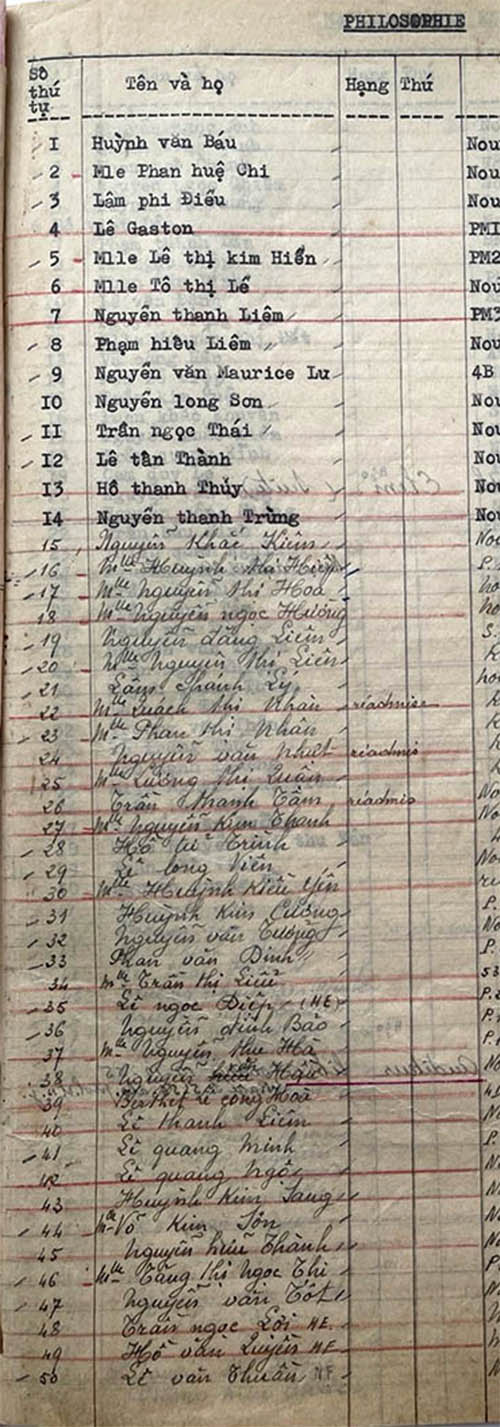 PHILOSOPHIE
Số thứ tự Tên và họ Hạng Thứ
1 Huỳnh văn Báu Nou
2 Mle Phan huệ Chi Nou
3 Lâm phi Điểu Nou
4 Lê Gaston PM1
5 Mlle Lê thị kim Hiền PM2
6 Mlle Tô thị Lể Nou
7 Nguyễn thanh Liêm PM3
8 Phạm hiếu Liêm Nou
9 Nguyễn văn Maurice Lu 4B
10 Nguyễn long Sơn Nou
11 Trần ngọc Thái Nou
12 Lê tân Thành Nou
13 Hồ thanh Thủy Nou
14 Nguyễn thanh Trừng Nou
15 Nguyễn Khắc Kiêm Nou
16 Mlle Huỳnh thị Hiệp P.
17 Mlle Nguyễn thị Hoa No
18 Mlle Nguyễn ngọc Hương No
19 Nguyễn đăng Liêm S.
20 Mlle Nguyễn thị Liên
21 Lâm Thành Lý
22 Mlle Quách thị Nhàn réadmise
23 Mlle Phan thị Nhân
24 Nguyễn văn Nhựt réadmis
25 Mlle Lương thị Quân
26 Trần thanh Tâm réadmis No
27 Mlle Nguyễn Kim Thanh No
28 Hồ Trinh
29 Lê long Viên No
30 Mlle Huỳnh Kiều Yến
31 Huỳnh Kim Cương P.
32 Nguyễn văn Tường No
33 Phan văn Dinh P.
34 Mlle Trần thị Liễu 53
35 Lê ngọc Điệp (HE) P.2
36 Nguyễn đình Bảo P.
37 Mlle Nguyễn thu Hà P.
38 Nguyễn Hậu No
39 công Hoà
40 Lê thanh Liêm No
41 Lê quang Minh P.
42 Lê quang Ngộ No
43 Huỳnh Kim Sang No
44 Mlle Võ Kim Sơn No
45 Nguyễn hữu Thành No
46 Mlle Tăng thị Ngọc Thi P.
47 Nguyễn văn Tốt
48 Trần ngọc Lợi HE.
49 Hồ văn Quyền HE
50 Lê văn Thuấn